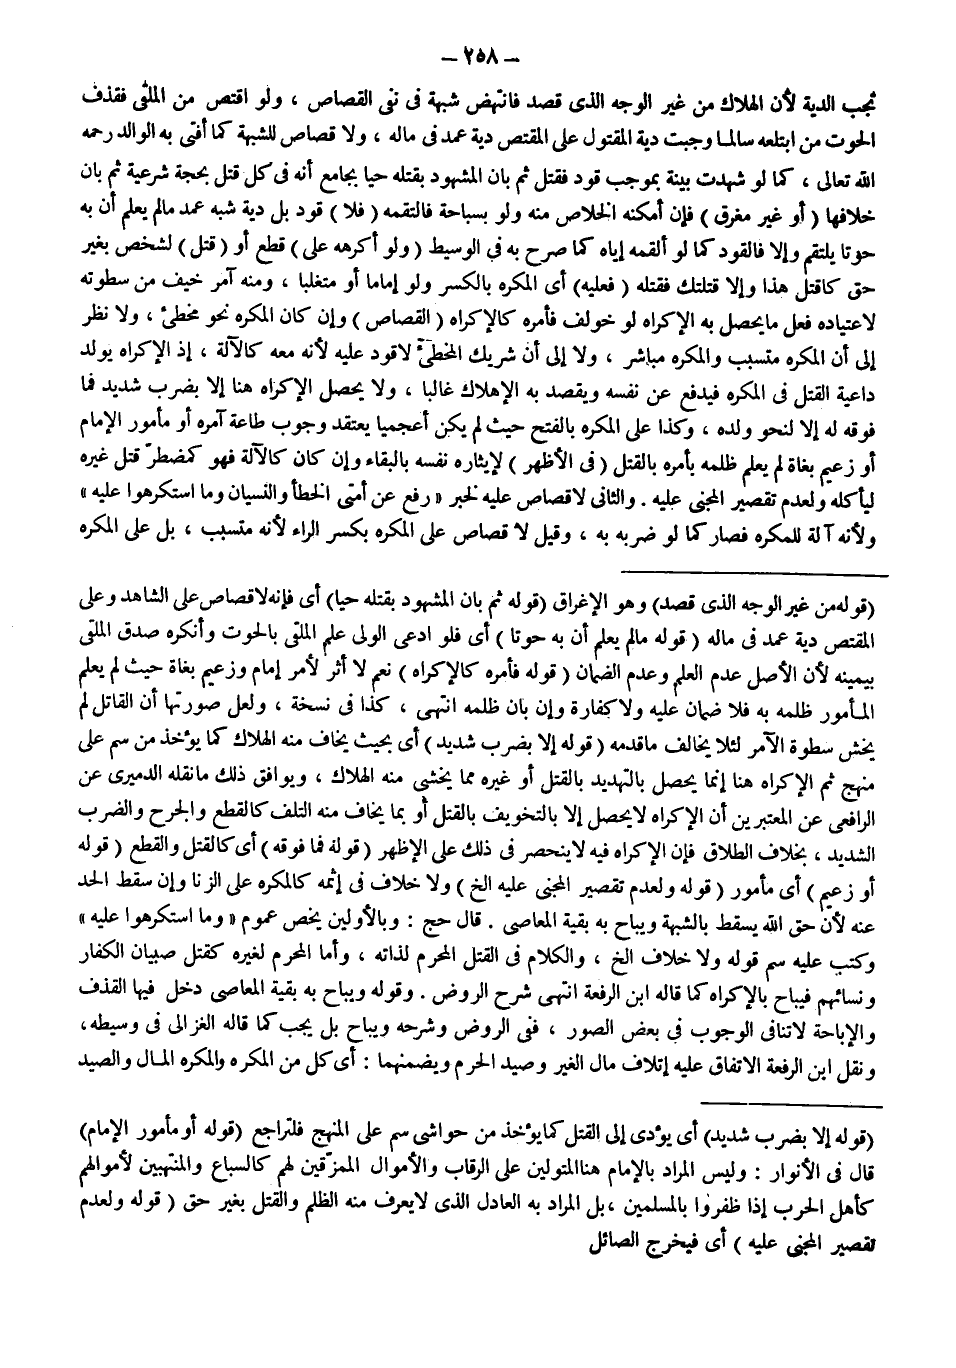 – ٢٥٨ –
تجب الدية لأن الهلاك من غير الوجه الذى قصد فانتهض شبهة فى نفى القصاص ، ولو اقتص من الملقى فقذف
الحوت من ابتلعه سالما وجبت دية المقتول على المقتص دية عمد فى ماله ، ولا قصاص للشبهة كما أفتى به الوالد رحمه
الله تعالى ، كما لو شهدت بينة بموجب قود فقتل ثم بان المشهود بقتله حيا بجامع أنه فى كل قتل بحجة شرعية ثم بان
خلافها ( أو غير مغرق ) فإن أمكنه الخلاص منه ولو بسباحة فالتقمه ( فلا ) قود بل دية شبه عمد مالم يعلم أن به
حوتا يلتقم وإلا فالقود كما لو ألقمه إياه كما صرح به فى الوسيط ( ولو أكرهه على ) قطع أو ( قتل ) لشخص بغير
حق كاقتل هذا وإلا قتلتك فقتله ( فعليه) أى المكره بالكسر ولو إماما أو متغلبا ، ومنه آمر خيف من سطوته
لاعتياده فعل مايحصل به الإكراه لو خولف فأمره كالإكراه ( القصاص ) وإن كان المكره نحو مخطئ ، ولا نظر
إلى أن المكره متسبب والمكره مباشر ، ولا إلى أن شريك المخطئ لاقود عليه لأنه معه كالآلة ، إذ الإكراه يولد
داعية القتل فى المكره فيدفع عن نفسه ويقصد به الإهلاك غالبا ، ولا يحصل الإكراه هنا إلا بضرب شديد فما
فوقه له إلا لنحو ولده ، وكذا على المكره بالفتح حيث لم يكن أعجميا يعتقد وجوب طاعة آمره أو مأمور الإمام
أو زعيم بغاة لم يعلم ظلمه بأمره بالقتل ( فى الأظهر ) لإيثاره نفسه بالبقاء وإن كان كالآلة فهو كمضطرّ قتل غيره
ليأكله ولعدم تقصير المجنى عليه . والثانى لاقصاص عليه لخبر « رفع عن أمتى الخطأ والنسيان وما استكرهوا عليه »
ولأنه آلة للمكره فصار كما لو ضربه به ، وقيل لا قصاص على المكره بكسر الراء لأنه متسبب ، بل على المكره
(قوله من غير الوجه الذى قصد) وهو الإغراق (قوله ثم بان المشهود بقتله حيا) أى فإنه لاقصاص على الشاهد وعلى
المقتص دية عمد فى ماله ( قوله مالم يعلم أن به حوتا ) أى فلو ادعى الولى علم الملقى بالحوت وأنكره صدق الملقى
بيمينه لأن الأصل عدم العلم وعدم الضمان ( قوله فأمره كالإكراه ) نعم لا أثر لأمر إمام وزعيم بغاة حيث لم يعلم
المأمور ظلمه به فلا ضمان عليه ولا كفارة وإن بان ظلمه انتهى ، كذا فى نسخة ، ولعل صورتها أن القاتل لم
يخش سطوة الآمر لئلا يخالف ماقدمه ( قوله إلا بضرب شديد ) أى بحيث يخاف منه الهلاك كما يؤخذ من سم على
منهج ثم الإكراه هنا إنما يحصل بالتهديد بالقتل أو غيره مما يخشى منه الهلاك ، ويوافق ذلك مانقله الدميرى عن
الرافعى عن المعتبرين أن الإكراه لايحصل إلا بالتخويف بالقتل أو بما يخاف منه التلف كالقطع والجرح والضرب
الشديد ، بخلاف الطلاق فإن الإكراه فيه لاينحصر فى ذلك على الإظهر ( قوله فما فوقه ) أى كالقتل والقطع ( قوله
أو زعيم ) أى مأمور ( قوله ولعدم تقصير المجنى عليه الخ ) ولا خلاف فى إثمه كالمكره على الزنا وإن سقط الحد
عنه لأن حق الله يسقط بالشبهة ويباح به بقية المعاصى . قال حج : وبالأولين يخص عموم « وما استكرهوا عليه »
وكتب عليه سم قوله ولا خلاف الخ ، والكلام فى القتل المحرم لذاته ، وأما المحرم لغيره كقتل صبيان الكفار
ونسائهم فيباح بالإكراه كما قاله ابن الرفعة انتهى شرح الروض . وقوله ويباح به بقية المعاصى دخل فيها القذف
والإباحة لاتنافى الوجوب فى بعض الصور ، ففى الروض وشرحه ويباح بل يجب كما قاله الغزالى فى وسيطه ،
ونقل ابن الرفعة الاتفاق عليه إتلاف مال الغير وصيد الحرم ويضمنهما : أى كل من المكره والمكره المال والصيد
(قوله إلا بضرب شديد) أى يؤدى إلى القتل كما يؤخذ من حواشى سم على المنهج فلتراجع (قوله أو مأمور الإمام)
قال فى الأنوار : وليس المراد بالإمام هنا المتولين على الرقاب والأموال الممزّقين لهم كالسباع والمنتهبين لأموالهم
كأهل الحرب إذا ظفروا بالمسلمين ، بل المراد به العادل الذى لايعرف منه الظلم والقتل بغير حق ( قوله ولعدم
تقصير المجنى عليه ) أى فيخرج الصائل